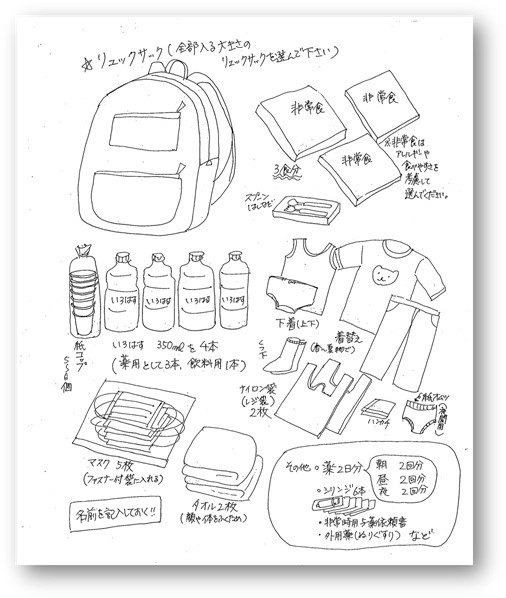 ☆リュックサック(全部入る大きさの
リュックサックを選んで下さい)
非常食
非常食
非常食
3食分
※非常食は
アレルギーや
食べやすさを
考慮して
選んでください。
スプーン
はしなど
いろはす
いろはす
いろはす
いろはす
紙コップ
5~6個
いろはす 350mlを4本
(薬用として3本、飲料用1本)
下着(上下)
着替え
くつ下
ナイロン袋
(レジ袋)
2枚
ハンカチ
マスク 5枚
(ファスナー付袋に入れる)
タオル2枚
(顔や体をふくため)
名前を記入しておく!!
その他 ・薬2日分
朝 2回分
昼 2回分
夜 2回分
・シリンジ6本
・非常時用与薬依頼書
・外用薬(ぬりぐすり) など